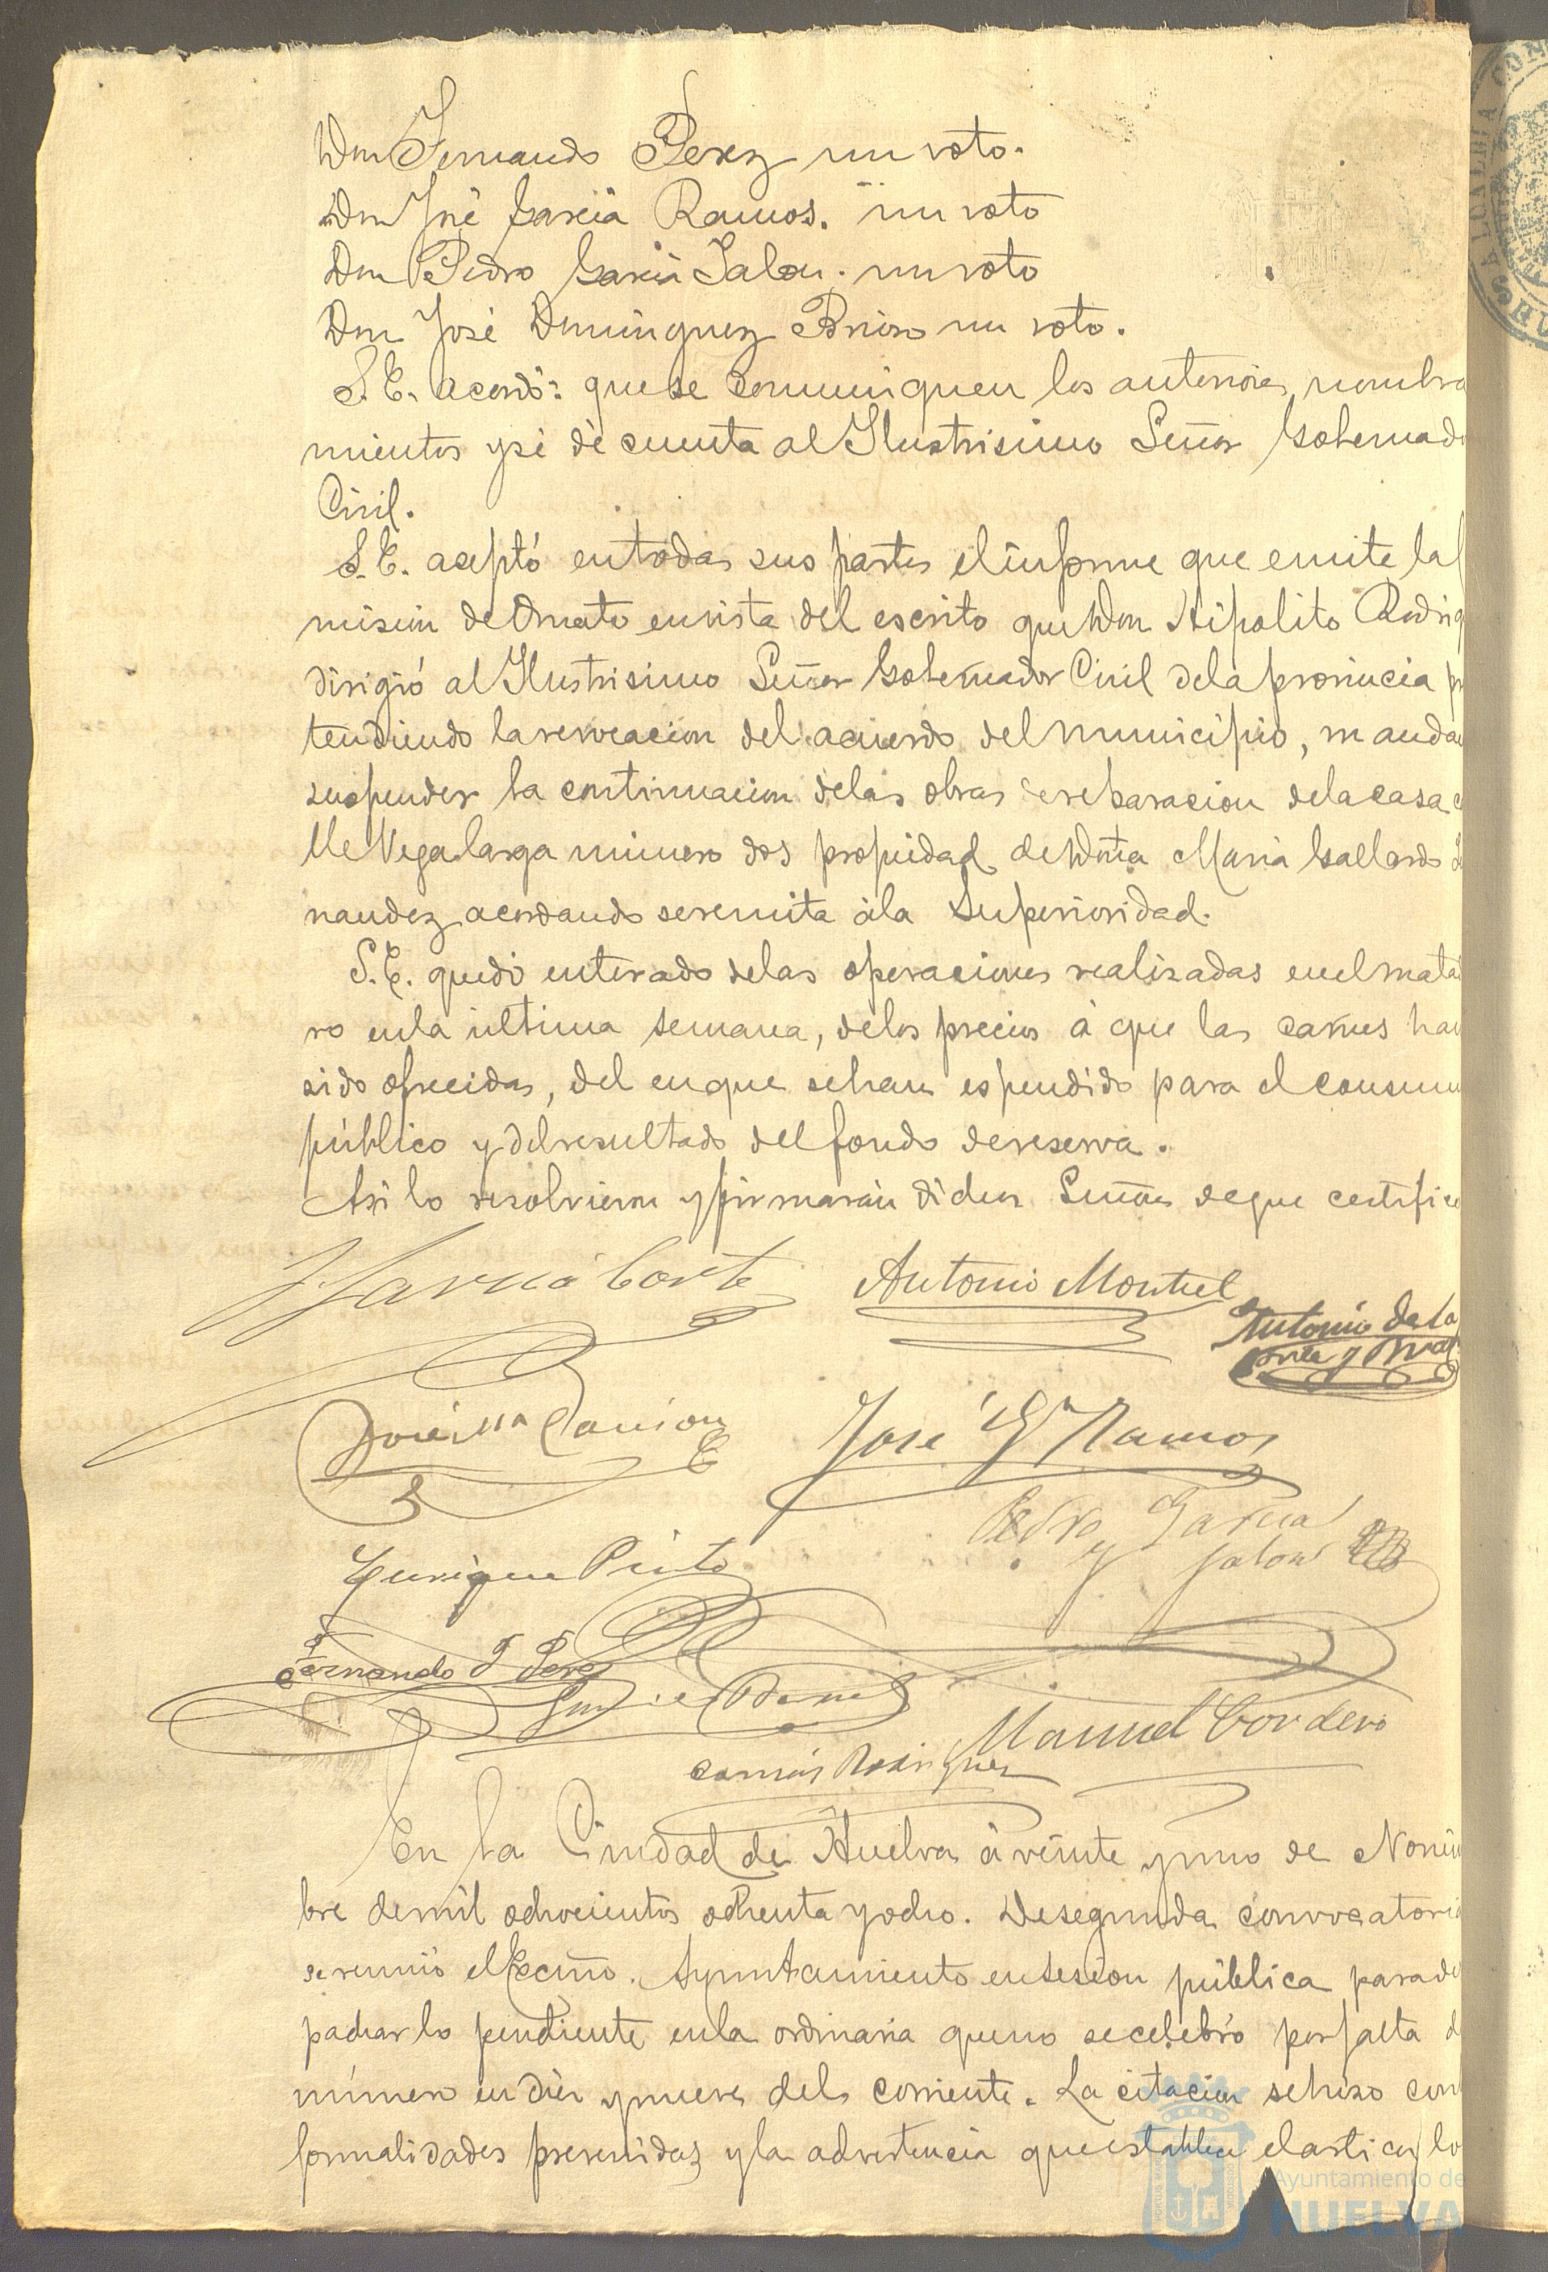 Don Fernando Perez un voto.
Don José García Ramos. un voto
Don Pedro García Jalon. un voto
Don José Dominguez un voto.
S.E. acordó: que se comuniquen los anteriores nombra
mientos y se dé cuenta al Ilustrisimo Señor Gobernad
Civil.
S.E. aceptó en todas sus partes el informe que emite la
mision de Ornato en vista del escrito que Don Hipolito Rodrig
dirigió al Ilustrisimo Señor Gobernador Civil de la provincia pr
tendiendo la revocacion del acuerdo del municipio, mandan
suspender la continuacion de las obras de reparacion de la casa c
lle Vega larga número dos propiedad de Doña Maria Gallardo
nandez acordando se remita á la Superioridad.
S.E. quedó enterado de las operaciones realizadas en el mata
ro en la última semana, de los precios á que las carnes han
sido ofrecidas, del en que se han espendido para el consumo
público y del resultado del fondo de reserva.
Asi lo resolvieron y firmarán dichos Señores de que certifico
García Corte
Antonio Montiel
Antonio de la
Corte y
José Mª
José Gª Ramos
Pedro García
y Jalon
Enrique Pinto
Fernando Perez
Manuel Cordero
Rodriguez
En la Ciudad de Huelva á veinte y uno de Noviem
bre de mil ochocientos ochenta y ocho. De segunda convocatoria
se reunió el Excmo. Ayuntamiento en sesion pública para des
pachar lo pendiente en la ordinaria que no se celebró por falta d
número en diez y nueve del corriente. La citacion se hizo con
formalidades prevenidas y la advertencia que establece el articulo
Ayuntamiento de
HUELVA